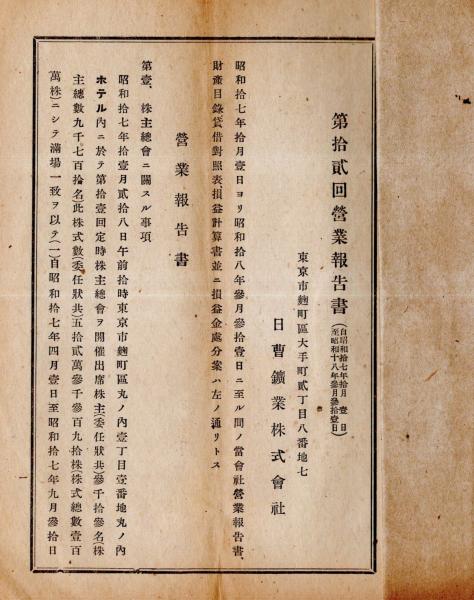 第拾貳回營業報告書(自昭和拾七年拾月壹日至昭和十八年參月參拾壹日)
東京市麴町區大手町貳丁目八番地七
日曹鑛業株式會社
昭和拾七年拾月壹日ヨリ昭和拾八年參月參拾壹日ニ至ル間ノ當會社營業報告書、
財產目錄、貸借對照表、損益計算書並ニ損益金處分案ハ左ノ通リトス
營業報告書
第壹、株主總會ニ關スル事項
昭和拾七年拾壹月貳拾八日午前拾時東京市麴町區丸ノ內壹丁目壹番地丸ノ內
ホテル內ニ於テ第拾壹回定時株主總會ヲ開催出席株主(委任狀共)參千拾參名(株
主總數九千七百拾名)此株式數(委任狀共)五拾貳萬參千參百九拾株(株式總數壹百
萬株)ニシテ滿場一致ヲ以テ(一)自昭和拾七年四月壹日至昭和拾七年九月參拾日